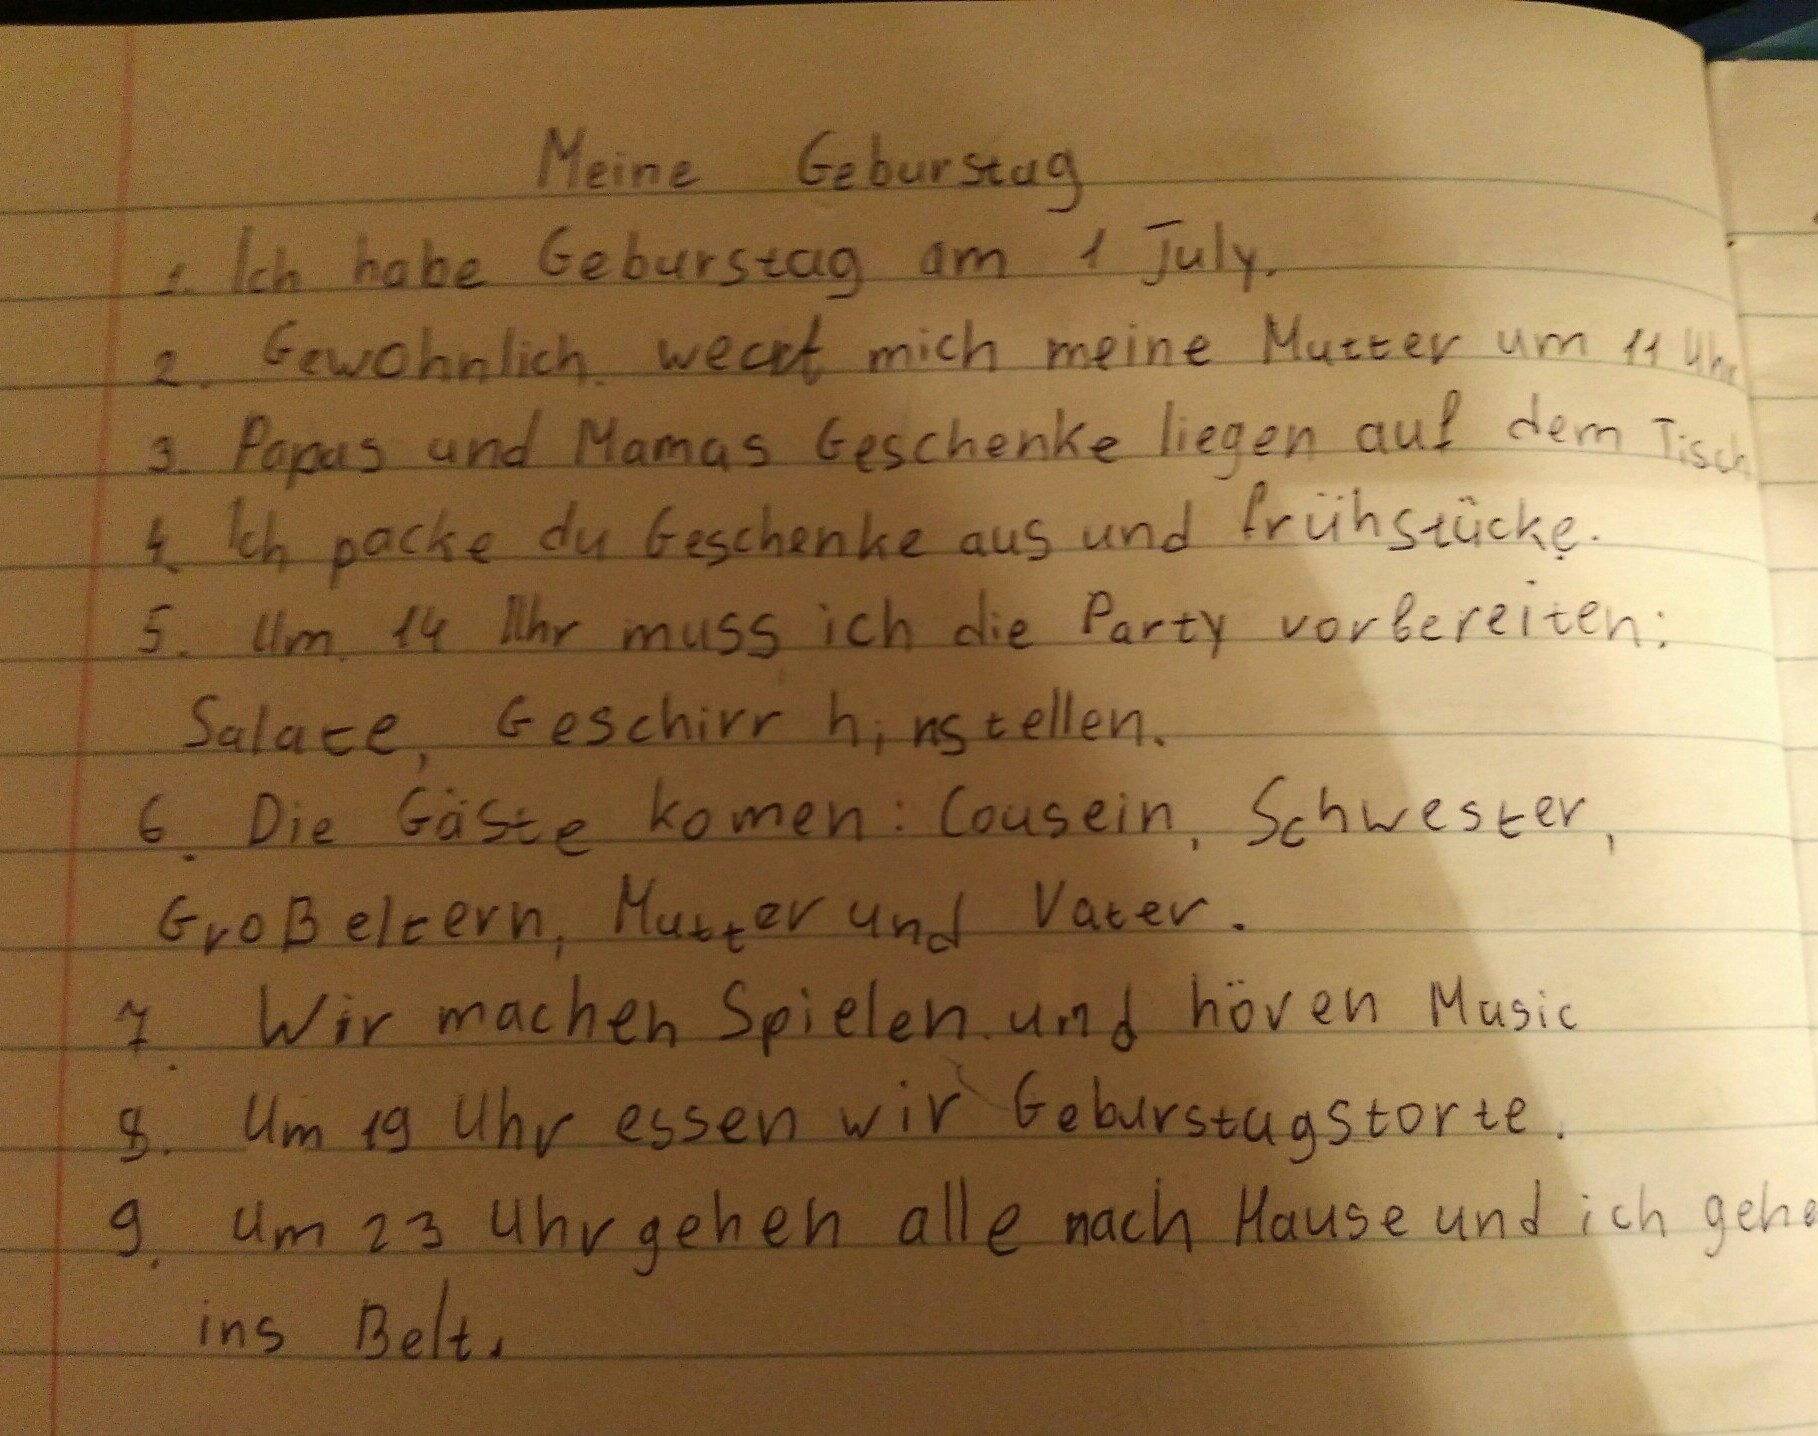 Meine Geburstag
1. Ich habe Geburstag am 1 July.
2. Gewohnlich. weckt mich meine Mutter um 11 Uhr
3. Papas und Mamas Geschenke liegen auf dem Tisch
4. Ich packe du Geschenke aus und frühstücke.
5. Um 14 Uhr muss ich die Party vorbereiten:
Salate, Geschirr hinstellen.
6. Die Gäste komen: Cousein, Schwester,
Großeltern, Mutter und Vater.
7. Wir machen Spielen und hören Music
8. Um 19 Uhr essen wir Geburstagstorte.
9. Um 23 Uhr gehen alle nach Hause und ich gehe
ins Belt.